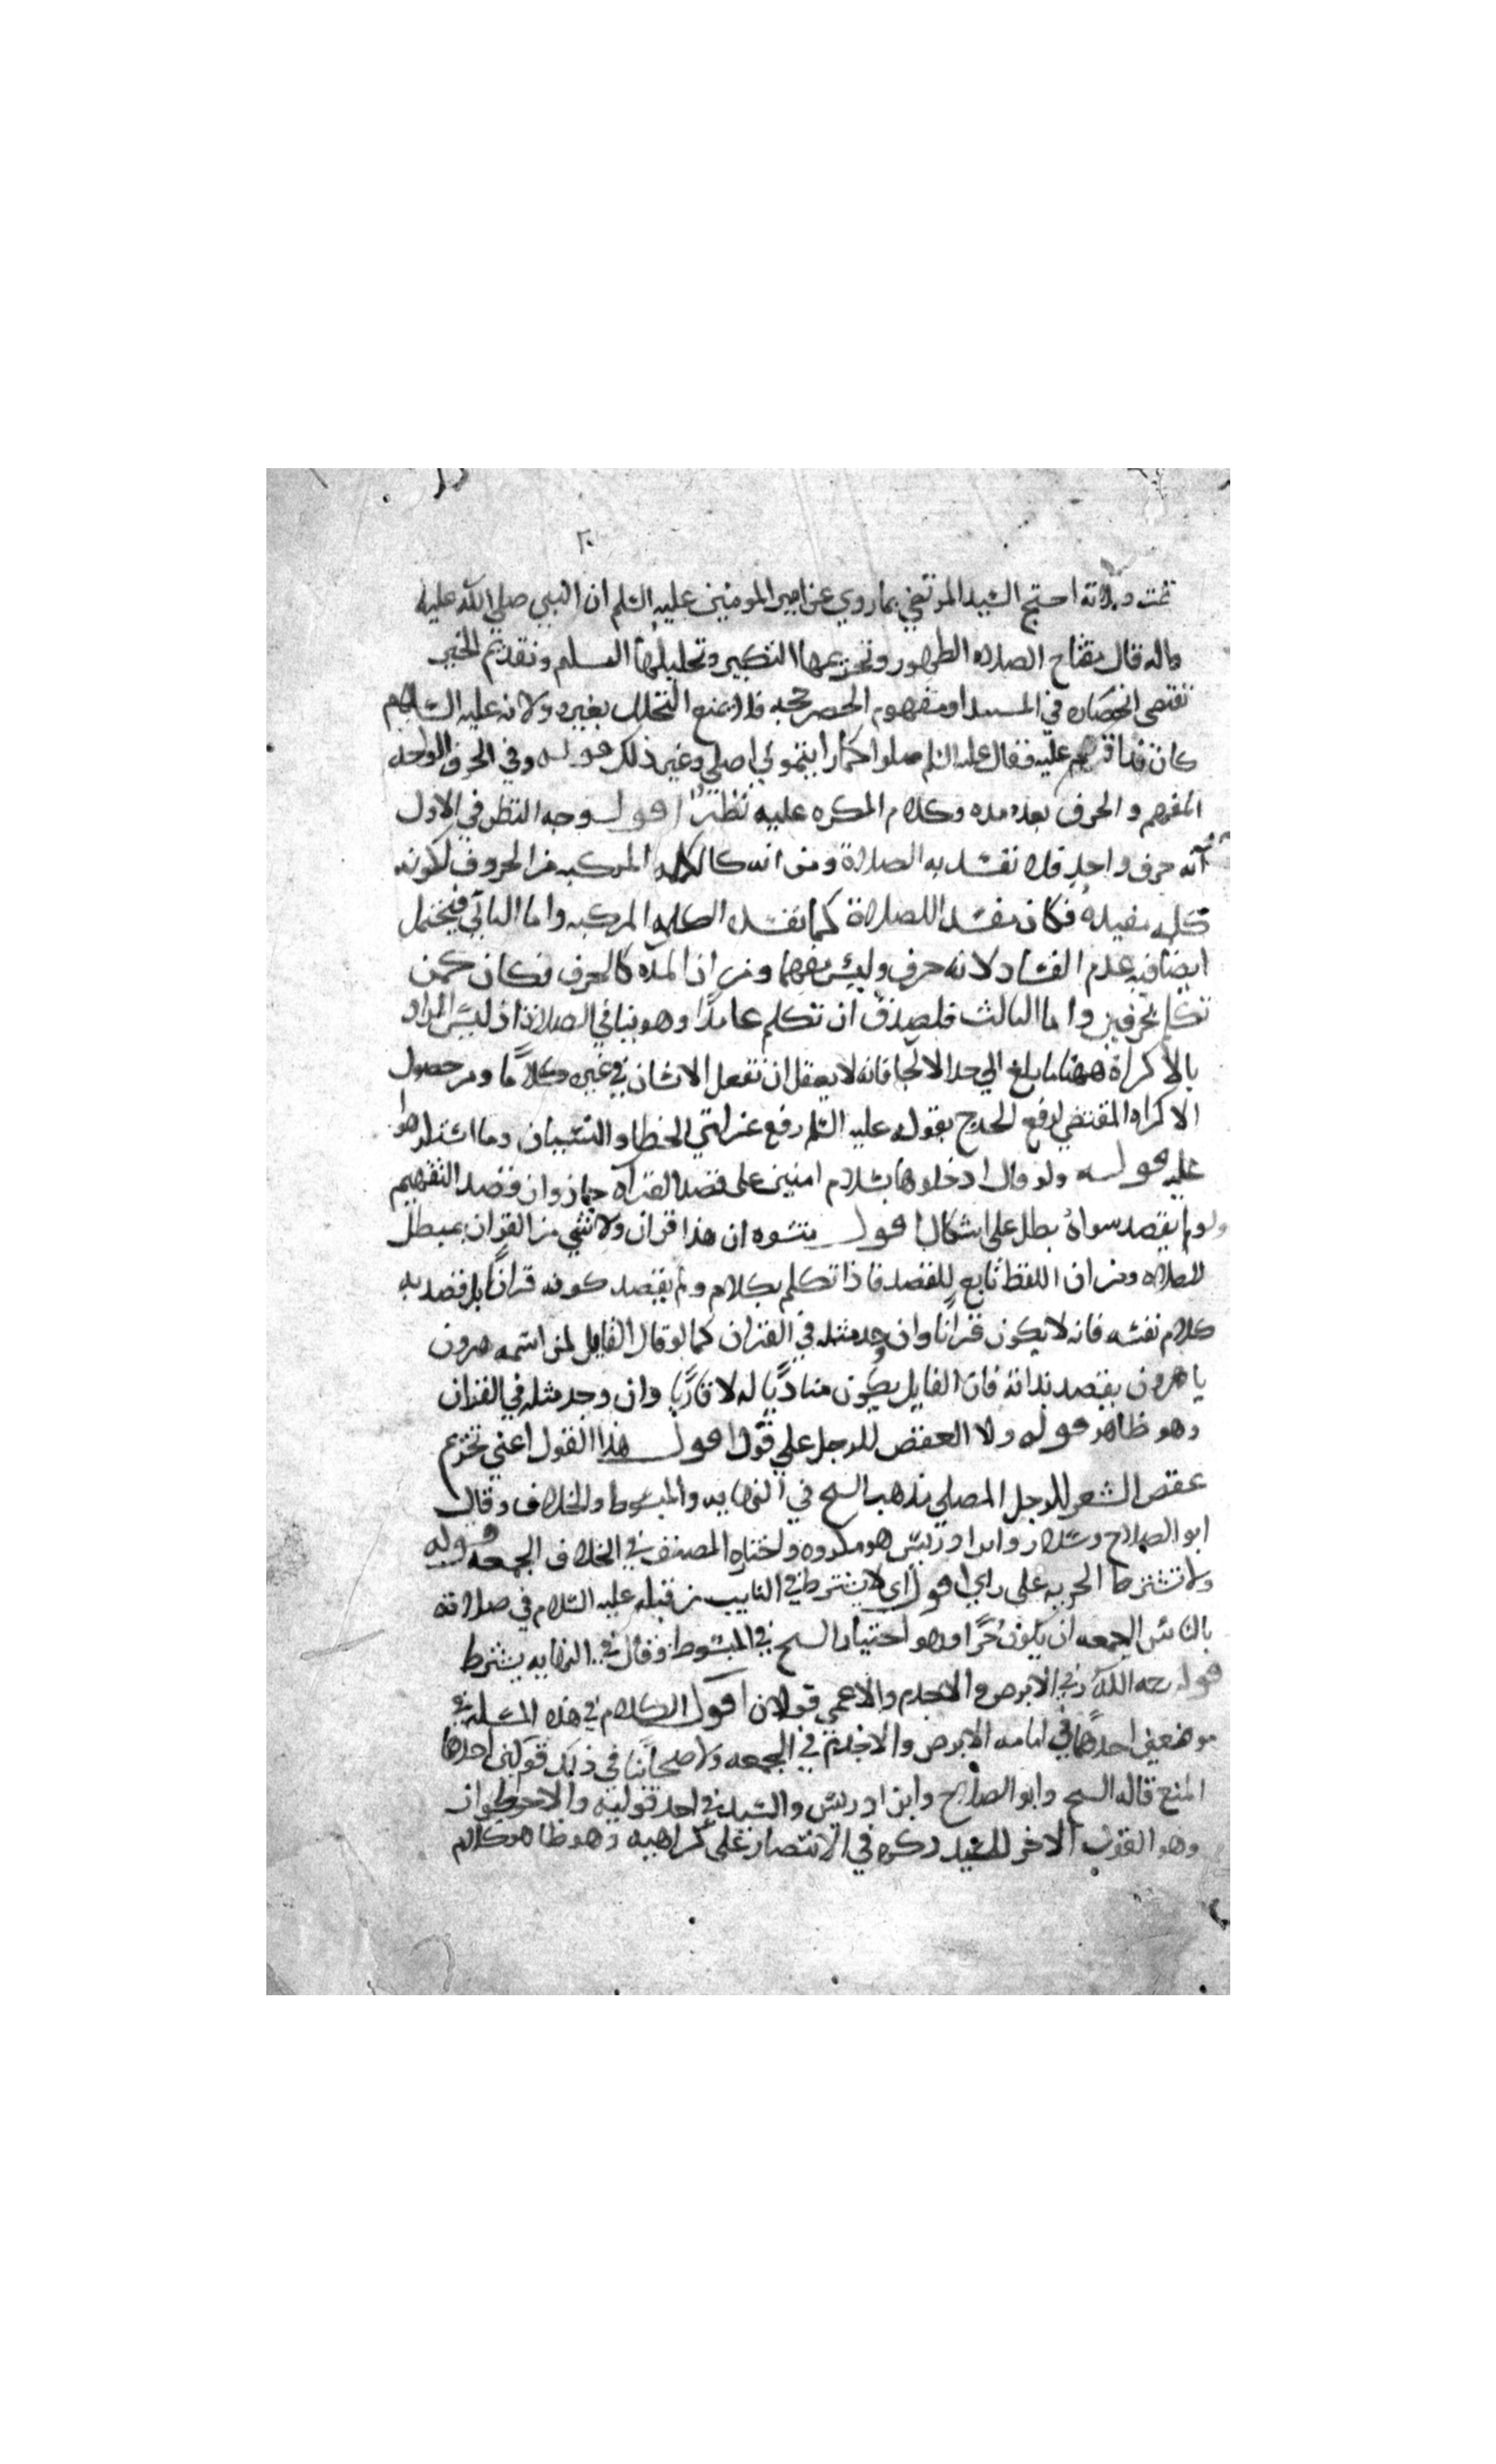 ٢٠
تمت صلاته احتج السيد المرتضي بما روي عن امير المومنين عليه السلم ان النبي صلي الله عليه
واله قال مفتاح الصلاه الطهور وتحريمها التكبير وتحليلها التسليم وتقديم الخبر
تقتضي انحصاره في المبتدا ومفهوم الحصر حجه فلا يمنع التحلل بغيره ولانه عليه السلام
عليه فقال عليه السلم صلوا كما رايتموني اصلي وغير ذلك قوله وفي الحرف الواحد
المفهم والحرف بعده مده وكلام المكره عليه نظر اقول وجه النظر في الاول
انه حرف واحد فلا تفسد به الصلاة ومن انه كالكلمه المركبه من الحروف لكونه
كلمه مفيدة فكان مفسدا للصلاة كما تفسده الكلمه المركبه واما الثاني فيحتمل
ايضا فيه عدم الفساد لانه حرف وليس مفهما ومن ان المده كالحرف فكان كمن
تكلم بحرفين واما الثالث فلصدق ان تكلم عامدا وهو ينافي الصلاة اذ ليس المراد
بالاكراه ههنا ما بلغ الي حد الالجا فانه لا يعقل ان تفعل الانسان في غيره كلاما ومن حصول
الاكراه المقتضي لرفع الحرج بقوله عليه السلم رفع عن امتي الخطا والنسيان وما استكرهوا
عليه قوله ولو قال ادخلوها بسلام امنين علي قصد القراة جاز وان قصد التفهيم
ولو لم يقصد سواه بطل علي اشكال اقول منشوه ان هذا قران ولا شي من القران بمبطل
للصلاه ومن ان اللفظ تابع للقصد فاذا تكلم بكلام ولم يقصد كونه قرانا بل قصد به
كلام نفسه فانه لا يكون قرانا وان وجد مثله في القران كما لو قال القايل لمن اسمه هرون
يا هرون بقصد ندائه فان القايل يكون مناديا له لا قاريا وان وجد مثله في القران
وهو ظاهر قوله ولا العقص للرجل علي قول اقول هذا القول اعني تحريم
عقص الشعر للرجل المصلي مذهب الشيخ في النهايه والمبسوط والخلاف وقال
ابو الصلاح وسلار وابن ادريس هو مكروه واختاره المصنف في الخلاف الجمعه قوله
ولا تشترط الحريه علي راي اقول اي لا يشترط في النايب من قبله عليه السلام في صلاته
بالناس الجمعه ان يكون حرا وهو اختيار الشيخ في المبسوط وقال في النهايه يشترط
قوله رحمه الله وفي الابرص والاجذم والاعمي قولان اقول الكلام في هذه المسلة في
موضعين احدهما في امامه الابرص والاجذم في الجمعه ولاصحابنا في ذلك قولين احدهما
المنع قاله الشيخ وابو الصلاح وابن ادريس والسيد في احد قوليه والاخر الجواز
وهو القول الاخر للسيد ذكره في الانتصار علي كراهيه وهو ظاهر كلام